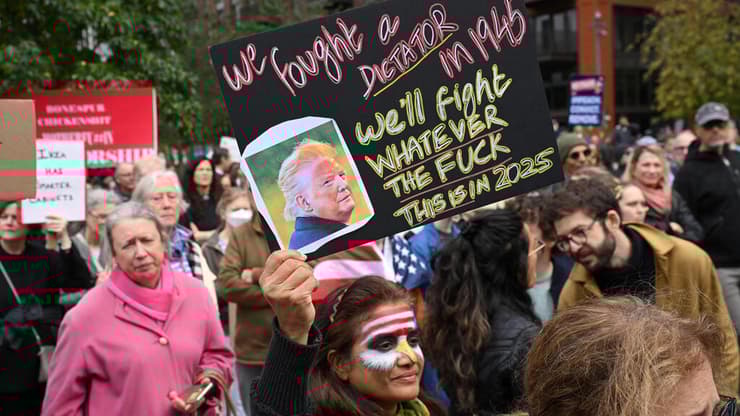 We fought a
DICTATOR
IN 1945
We'll fight
WHATEVER
THE FUCK
THIS IS IN 2025
BONESPUR
CHICKENSHIT
IKEA
HAS
SMARTER
CABINETS
REMOVE